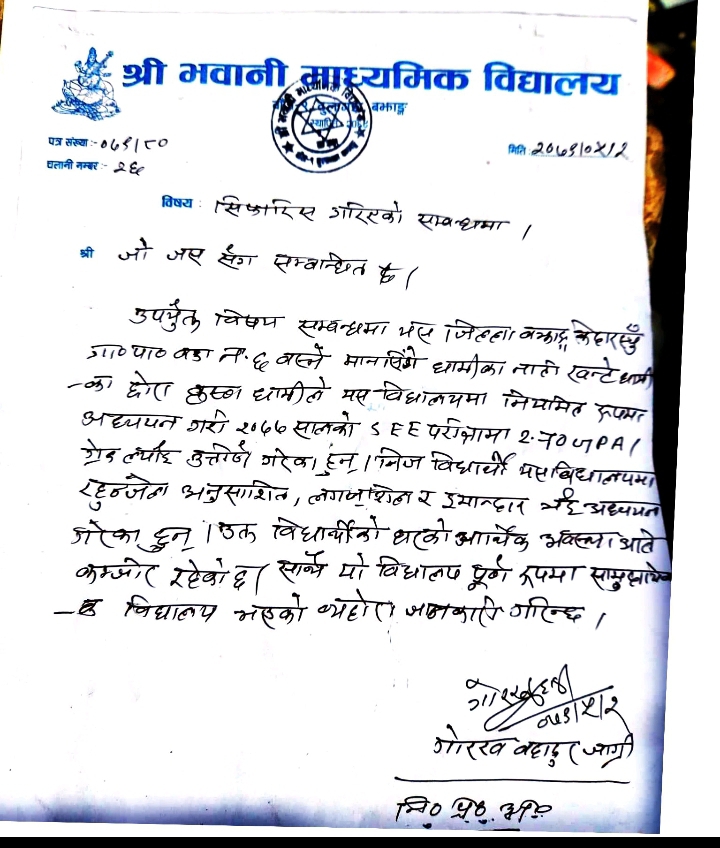 श्री भवानी माध्यमिक विद्यालय
बझाङ्ग
पत्र संख्या :- ०७९/८०
चलानी नम्बर :- २६
मिति २०७९/०४/२
विषय : सिफारिस गरिएको सम्बन्धमा ।
श्री जो जस संग सम्बन्धित छ ।
उपर्युक्त विषय सम्बन्धमा यस जिल्ला बझाङ्ग केदारस्युँ
गा०पा० वडा नं. ६ बस्ने मानसिंगे धामीका नाती खन्टे धामी
-का छोरा धामीले यस विद्यालयमा नियमित रूपमा
अध्ययन गरी २०७७ सालको SEE परीक्षामा 2.70 GPA /
ग्रेड ल्याई उत्तीर्ण गरेका हुन् । निज विद्यार्थी यस विद्यालयमा
रहुन्जेल अनुसाशित, लगनशिल र इमान्दार भई अध्ययन
गरेका हुन् । उक्त विद्यार्थीको घरको आर्थिक अवस्था अति
कम्जोर रहेको छ । साथै यो विद्यालय पूर्ण रूपमा सामुदायि
-क विद्यालय भएको व्यहोरा जानकारी गरिन्छ ।
गोरख बहादुर जाग्री
नि० प्र० अ०